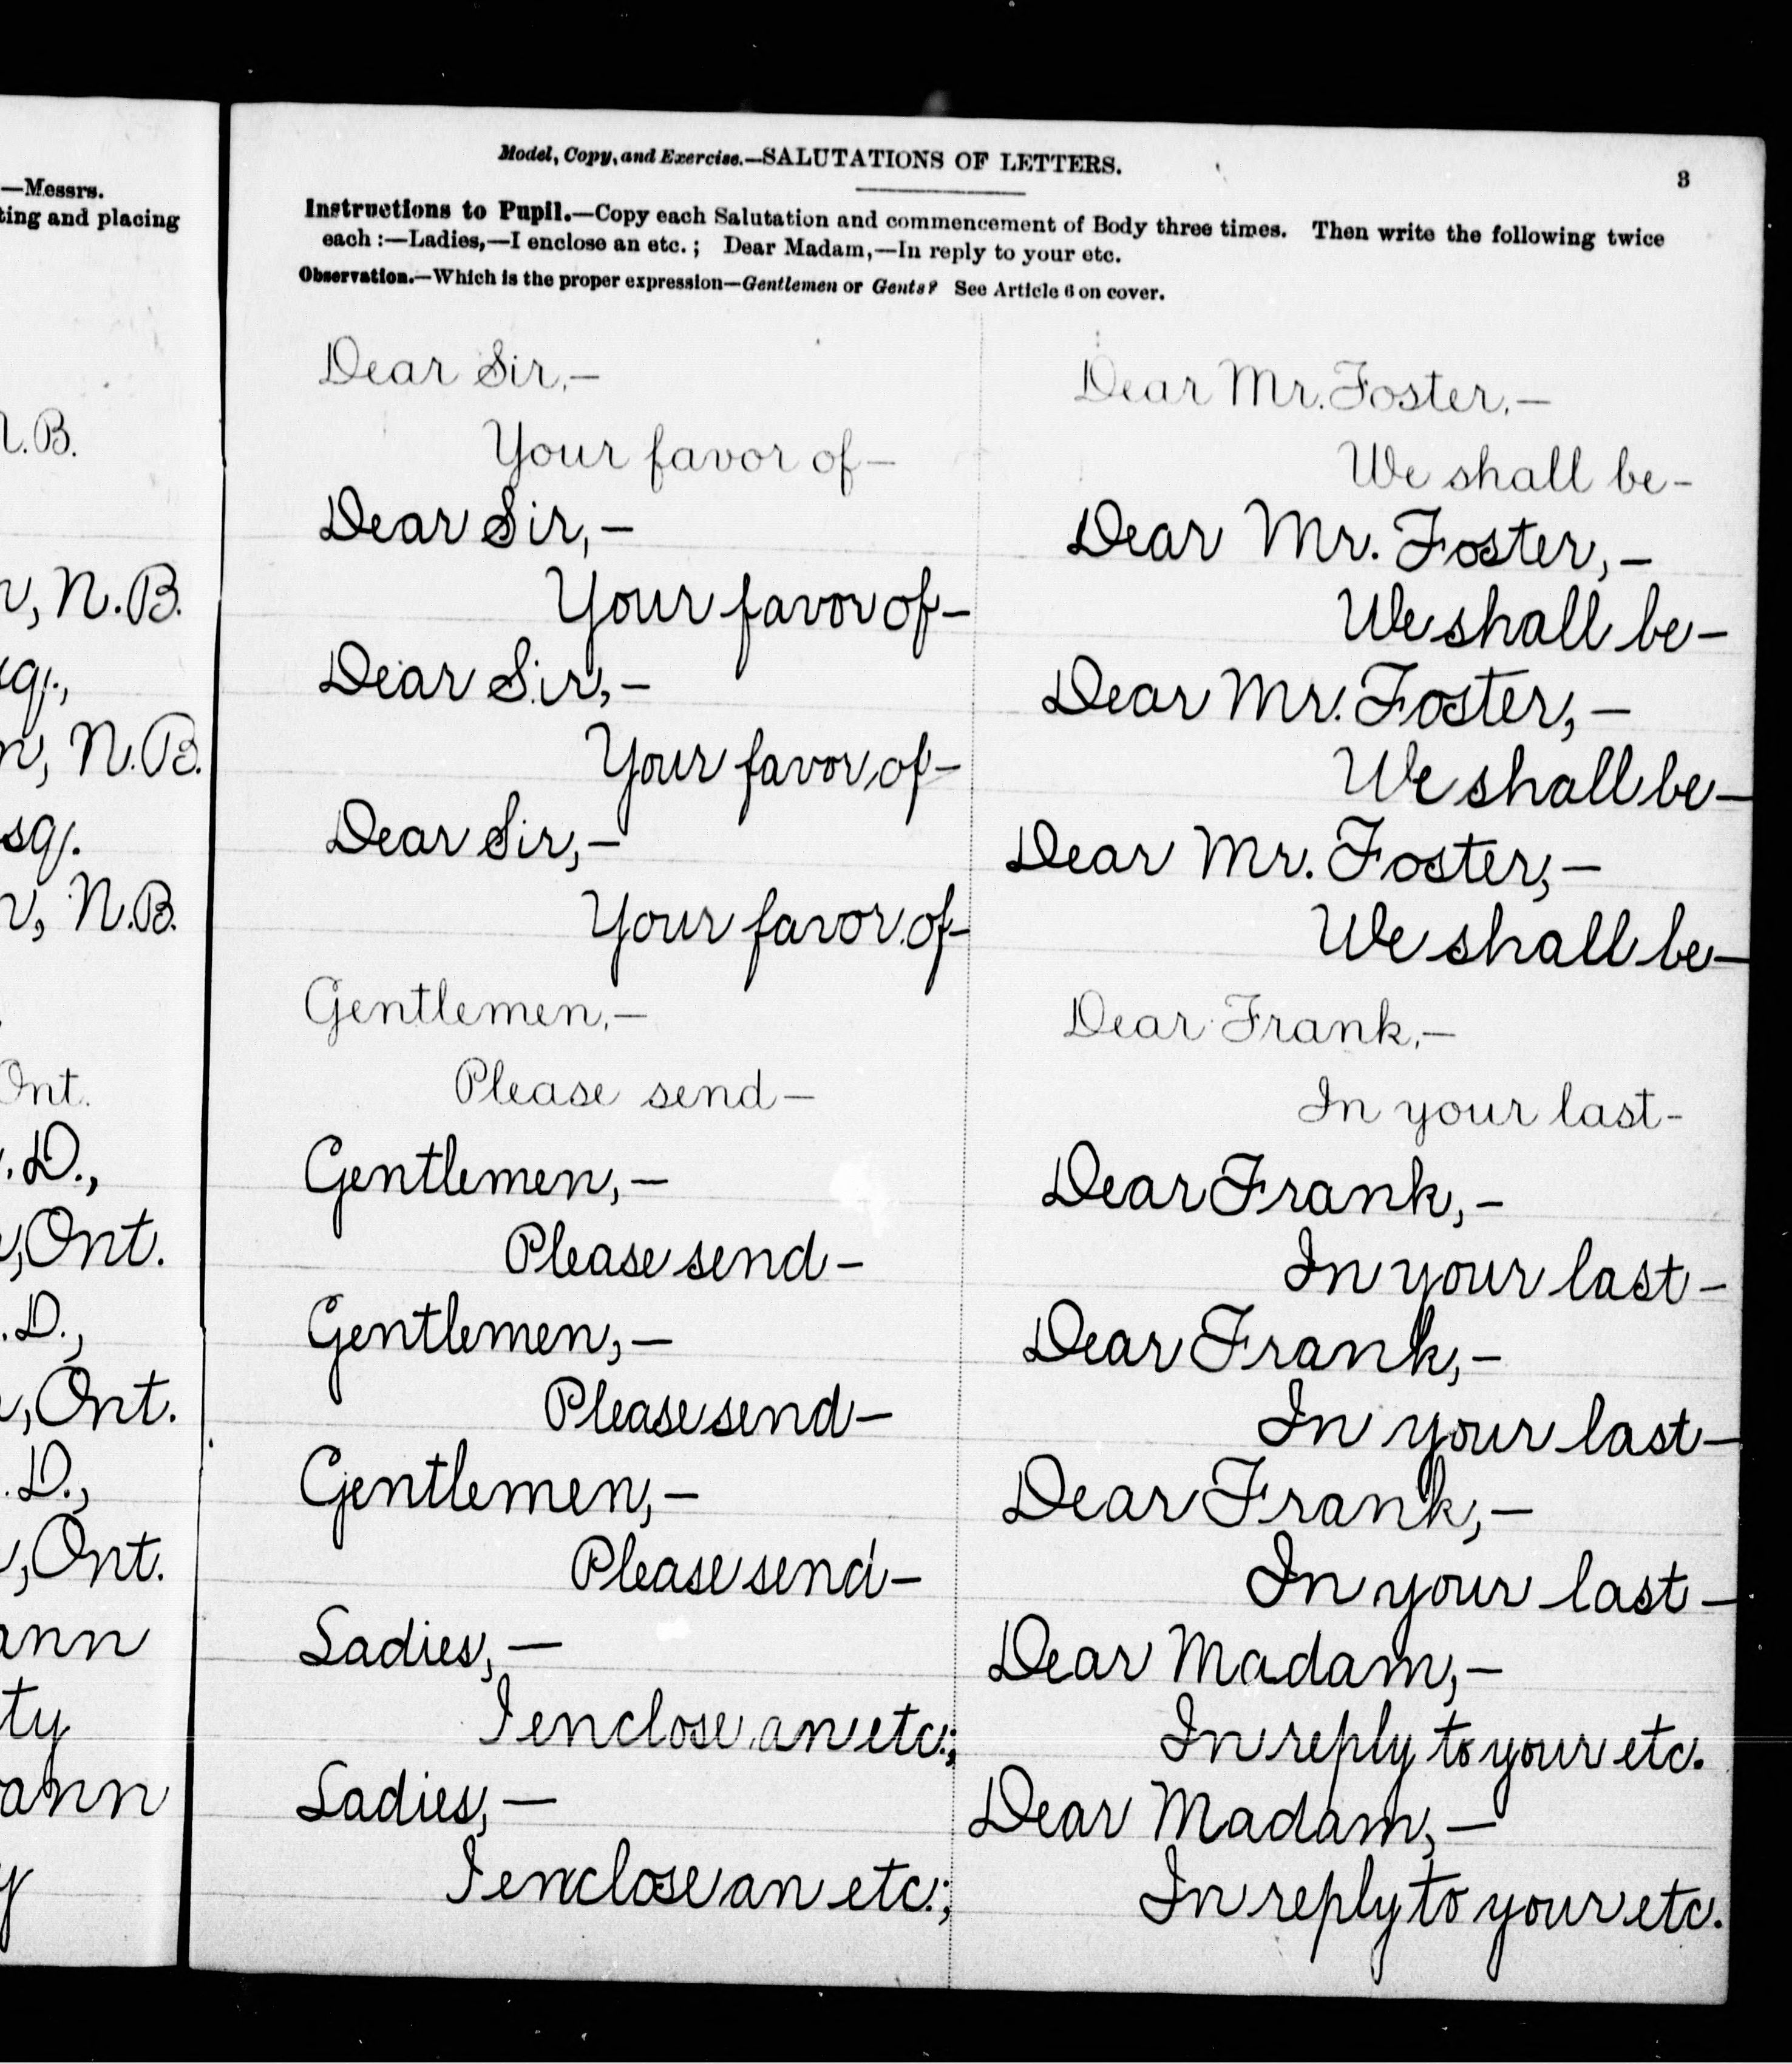 —Messrs.
ting and placing
N.B.
r, N.B.
sq.,
n, N.B.
sq.
r, N.B.
Ont.
. D.,
, Ont.
. D.,
, Ont.
. D.,
, Ont.
ann
ty
ann
y
Model, Copy, and Exercise.—SALUTATIONS OF LETTERS.
3
Instructions to Pupil.—Copy each Salutation and commencement of Body three times. Then write the following twice
each :—Ladies,—I enclose an etc. ; Dear Madam,—In reply to your etc.
Observation.—Which is the proper expression—Gentlemen or Gents? See Article 6 on cover.
Dear Sir,—
Your favor of—
Dear Sir,—
Your favor of—
Dear Sir,—
Your favor of—
Dear Sir,—
Your favor of—
Gentlemen,—
Please send—
Gentlemen,—
Please send—
Gentlemen,—
Please send—
Gentlemen,—
Please send—
Ladies,—
I enclose an etc.;
Ladies,—
I enclose an etc.;
Dear Mr. Foster,—
We shall be—
Dear Mr. Foster,—
We shall be—
Dear Mr. Foster,—
We shall be—
Dear Mr. Foster,—
We shall be—
Dear Frank,—
In your last—
Dear Frank,—
In your last—
Dear Frank,—
In your last—
Dear Frank,—
In your last—
Dear Madam,—
In reply to your etc.
Dear Madam,—
In reply to your etc.